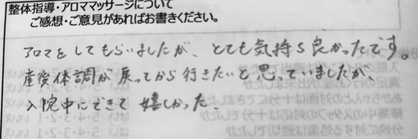 整体指導・アロマッサージについて
ご感想・ご意見があればお書きください。
アロマをしてもらいましたが、とても気持ち良かったです。
産後体調が戻ってから行きたいと思っていましたが、
入院中にできて嬉しかった。